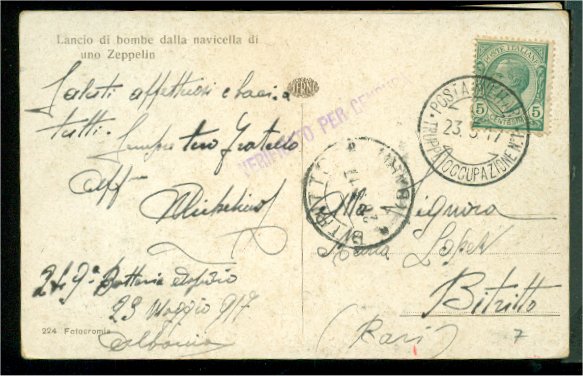 Lancio di bombe dalla navicella di
uno Zeppelin
Saluti affettuosi e baci a
tutti. Sempre tuo fratello
aff
Michelino
249ª Batteria assedio
23 Maggio 917
Albania
224 Fotocromia
VERIFICATO PER CENSURA
POSTE ITALIANE
5 CENTESIMI 5
POSTA MILITARE
23.5.17
TRUPPE OCCUPAZIONE
BITRITTO
Alla Signora
Maria
Bitritto
(Bari)
7